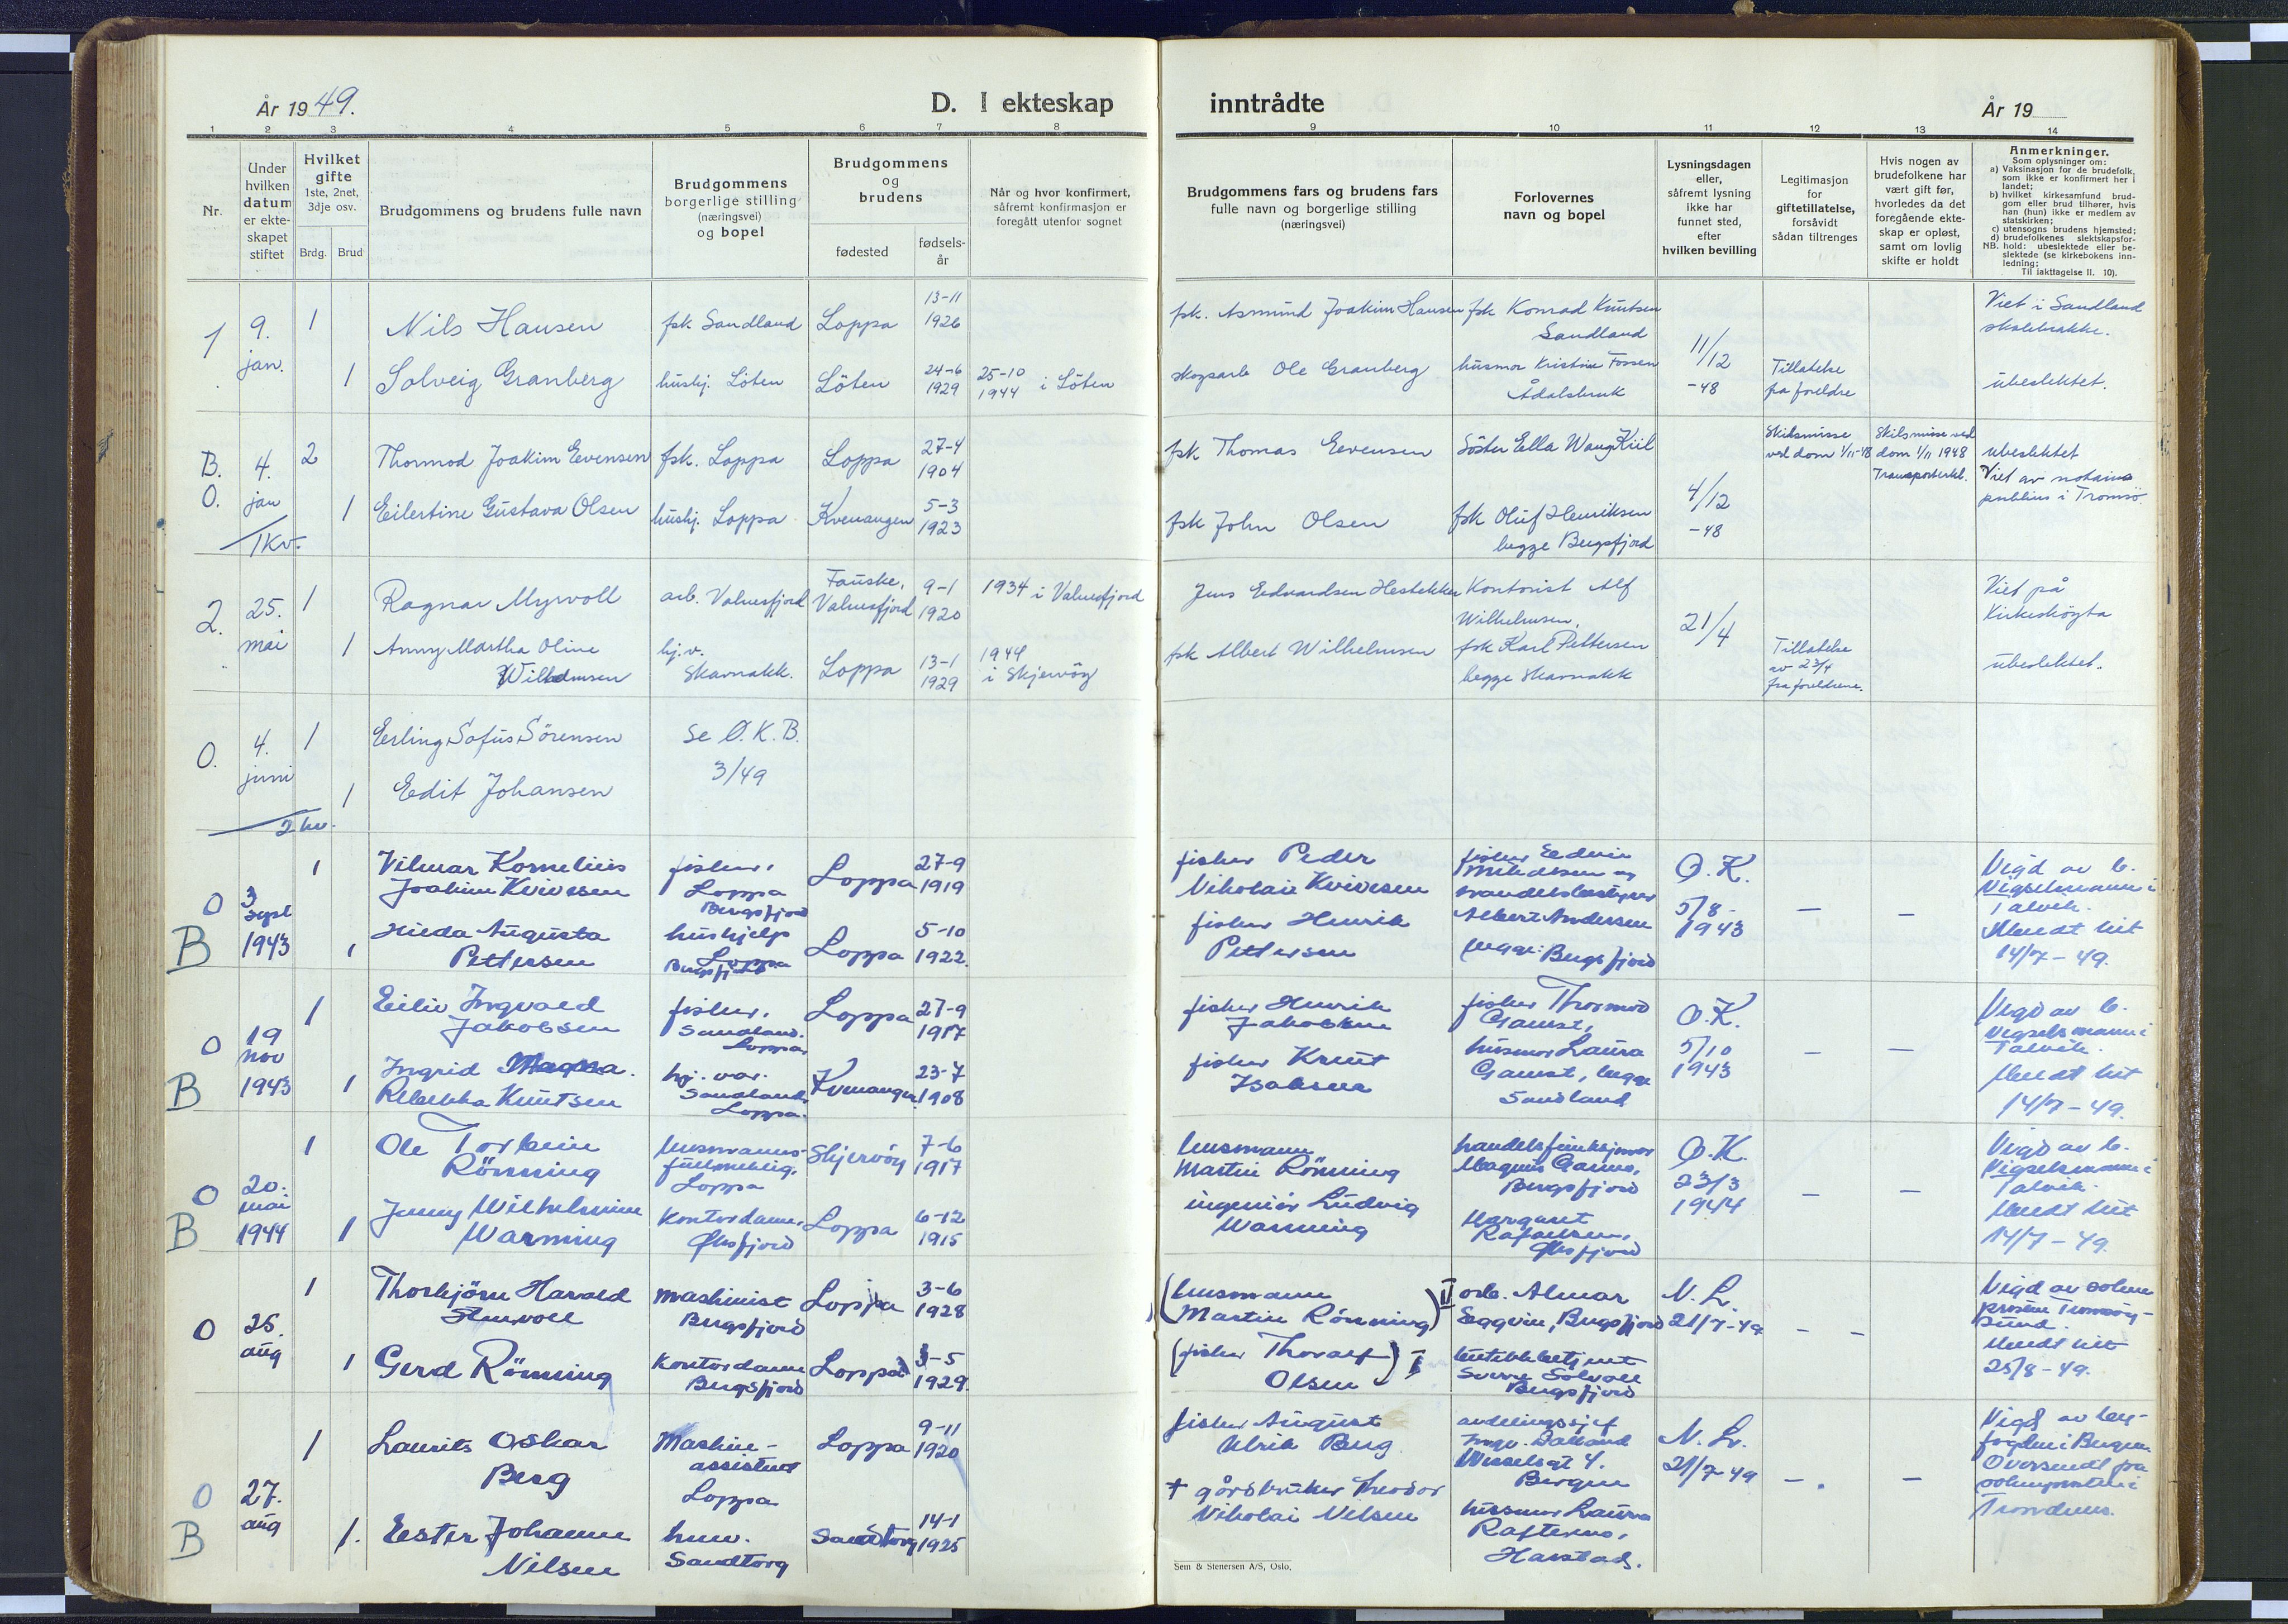 År 1949.
D. I ekteskap inntrådte
År 19
1 2 3 4 5 6 7 8 9 10 11 12 13 14
Nr.
Under hvilken datum er ekteskapet stiftet
Hvilket gifte
1ste, 2net, 3dje osv.
Brdg. Brud
Brudgommens og brudens fulle navn
Brudgommens borgerlige stilling (næringsvei) og bopel
Brudgommens og brudens
fødested
fødsels-år
Når og hvor konfirmert, såfremt konfirmasjon er foregått utenfor sognet
Brudgommens fars og brudens fars fulle navn og borgerlige stilling (næringsvei)
Forlovernes navn og bopel
Lysningsdagen eller, såfremt lysning ikke har funnet sted, efter hvilken bevilling
Legitimasjon for giftetillatelse, forsåvidt sådan tiltrenges
Hvis nogen av brudefolkene har vært gift før, hvorledes da det foregående ekteskap er opløst, samt om lovlig skifte er holdt
Anmerkninger.
Som oplysninger om:
a) Vaksinasjon for de brudefolk, som ikke er konfirmert her i landet;
b) hvilket kirkesamfund brudgom eller brud tilhører, hvis han (hun) ikke er medlem av statskirken;
c) utensogns brudens hjemsted;
d) brudefolkenes slektskapsforhold: ubeslektede eller beslektede (se kirkebokens innledning;
NB. Til iakttagelse II. 10).
1 9. jan. 1 Nils Hansen fsk. Sandland Loppa 13-11 1926
fsk. Asmund Joakim Hansen fsk Konrad Knutsen Sandland 11/12 -48 Viet i Sandland skolebrakke.
1 Solveig Granberg hushj. Löten Löten 24-6 1929 25-10 1944 i Löten
skogsarb Ole Granberg husmor Kristine Fossen Ådalsbruk Tillatelse fra foreldre ubeslektet.
B. O. 4. jan 2 Thormod Joakim Evensen fsk. Loppa Loppa 27-4 1904
fsk Thomas Evensen Söster Ella Waug Kiil 4/12 -48 Skilsmisse ved dom 1/11-48 Skilsmisse ved dom 1/11 1948 ubeslektet
1 Eilertine Gustava Olsen hushj. Loppa Kvenangen 5-3 1923
fsk John Olsen fsk Oluf Henriksen begge Bergsfjord Viet av notarius publius i Tromsö
1 kv.
2. 25. mai 1 Ragnar Myrvoll arb. Valnesfjord Fauske, Valnesfjord 9-1 1920 1934 i Valnesfjord
Jens Edvardsen Hestekker Kontorist Alf Wilhelmsen, 21/4 Viet på Kirkeskögta
1 Anny Martha Oline Wilhelmsen hj.v. Skavnakk. Loppa 13-1 1929 1944 i Skjervöy
fsk Albert Wilhelmsen fsk Karl Pettersen begge Skavnakk Tillatelse av 23/4 fra foreldrene. ubeslektet.
O. 4. juni 1 Erling Sofus Sörensen se Ø.K.B. 3/49
1 Edit Johansen
2 kv.
O B 3 sept 1943 1 Vilmar Kornelius Joakim Kvivesen fisker, Loppa Bergsfjord Loppa 27-9 1919
fisker Peder Nikolai Kvivesen fisker Edvin Mikalsen og handelsbestyrer Albert Andersen begge: Bergsfjord O.K. 5/8- 1943 – –
1 Hilda Augusta Pettersen hushjelp Loppa Bergsfjord Loppa 5-10 1922.
fisker Henrik Pettersen
Vigd av b. Vigselsmann i Talvik. Meldt hit 14/7-49.
O B 19 nov 1943 1 Eiliv Ingvald Jakobsen fisker, Sandland. Loppa. Loppa 27-9 1917
fisker Henrik Jakobsen fisker Thormod Gamst, husmor Laura Gamst, begge Sandland O.K. 5/10 1943 – –
1 Ingrid Magna. Rebekka Knutsen hj. var. Sandland Loppa. Kvenangen 23-7 1908
fisker Knut Isaksen
Vigd av b. Vigselsmann i Talvik. Meldt hit 14/7-49.
O B 20. mai 1944 1 Ole Torbein Rönning lensmanns-fullmektig, Loppa Skjervöy 7-6 1917
lensmann Martin Rönning handelsfunksjonær Magnus Garms, Bergsfjord O.K. 23/3 1944 – –
1 Jenny Wilhelmine Warming Kontordame, Øksfjord Loppa 6-12 1915
ingeniör Ludvig Warming Margaret Rafaelsen, Øksfjord
Vigd av b. Vigselsmann i Talvik. Meldt hit 14/7-49.
O 25. aug 1 Thorbjörn Harald Stenvoll maskinist Bergsfjord Loppa 3-6 1928
(lensmann Martin Rönning) II arb. Almar Eggvin, Bergsfjord N.L. 21/7-49 – –
1 Gerd Rönning Kontordame Bergsfjord Loppa 3-5 1929.
(fisker Thoralf Olsen) I butikkbetjent Sverre Solvoll Bergsfjord
Vigd av sokneprosten Tromsöysund. Meldt hit 25/8-49.
O B 27. aug 1 Laurits Oskar Berg Maskin-assistent Loppa Loppa 9-11 1920
fisker August Ulrik Berg. avdelingssjef Inge. Dalland Wesselsgt 4. Bergen N.L. 21/7-49 – –
1. Ester Johanne Nilsen huv. Sandtorg Sandtorg 14-1 1925
+ gårdbruker Theodor Nikolai Nilsen husmor Laura Rafteras, Harstad.
Vigd av byfogden i Bergen Oversendt fra soknepresten i Trondenes.
Sem & Stenersen A/S, Oslo.